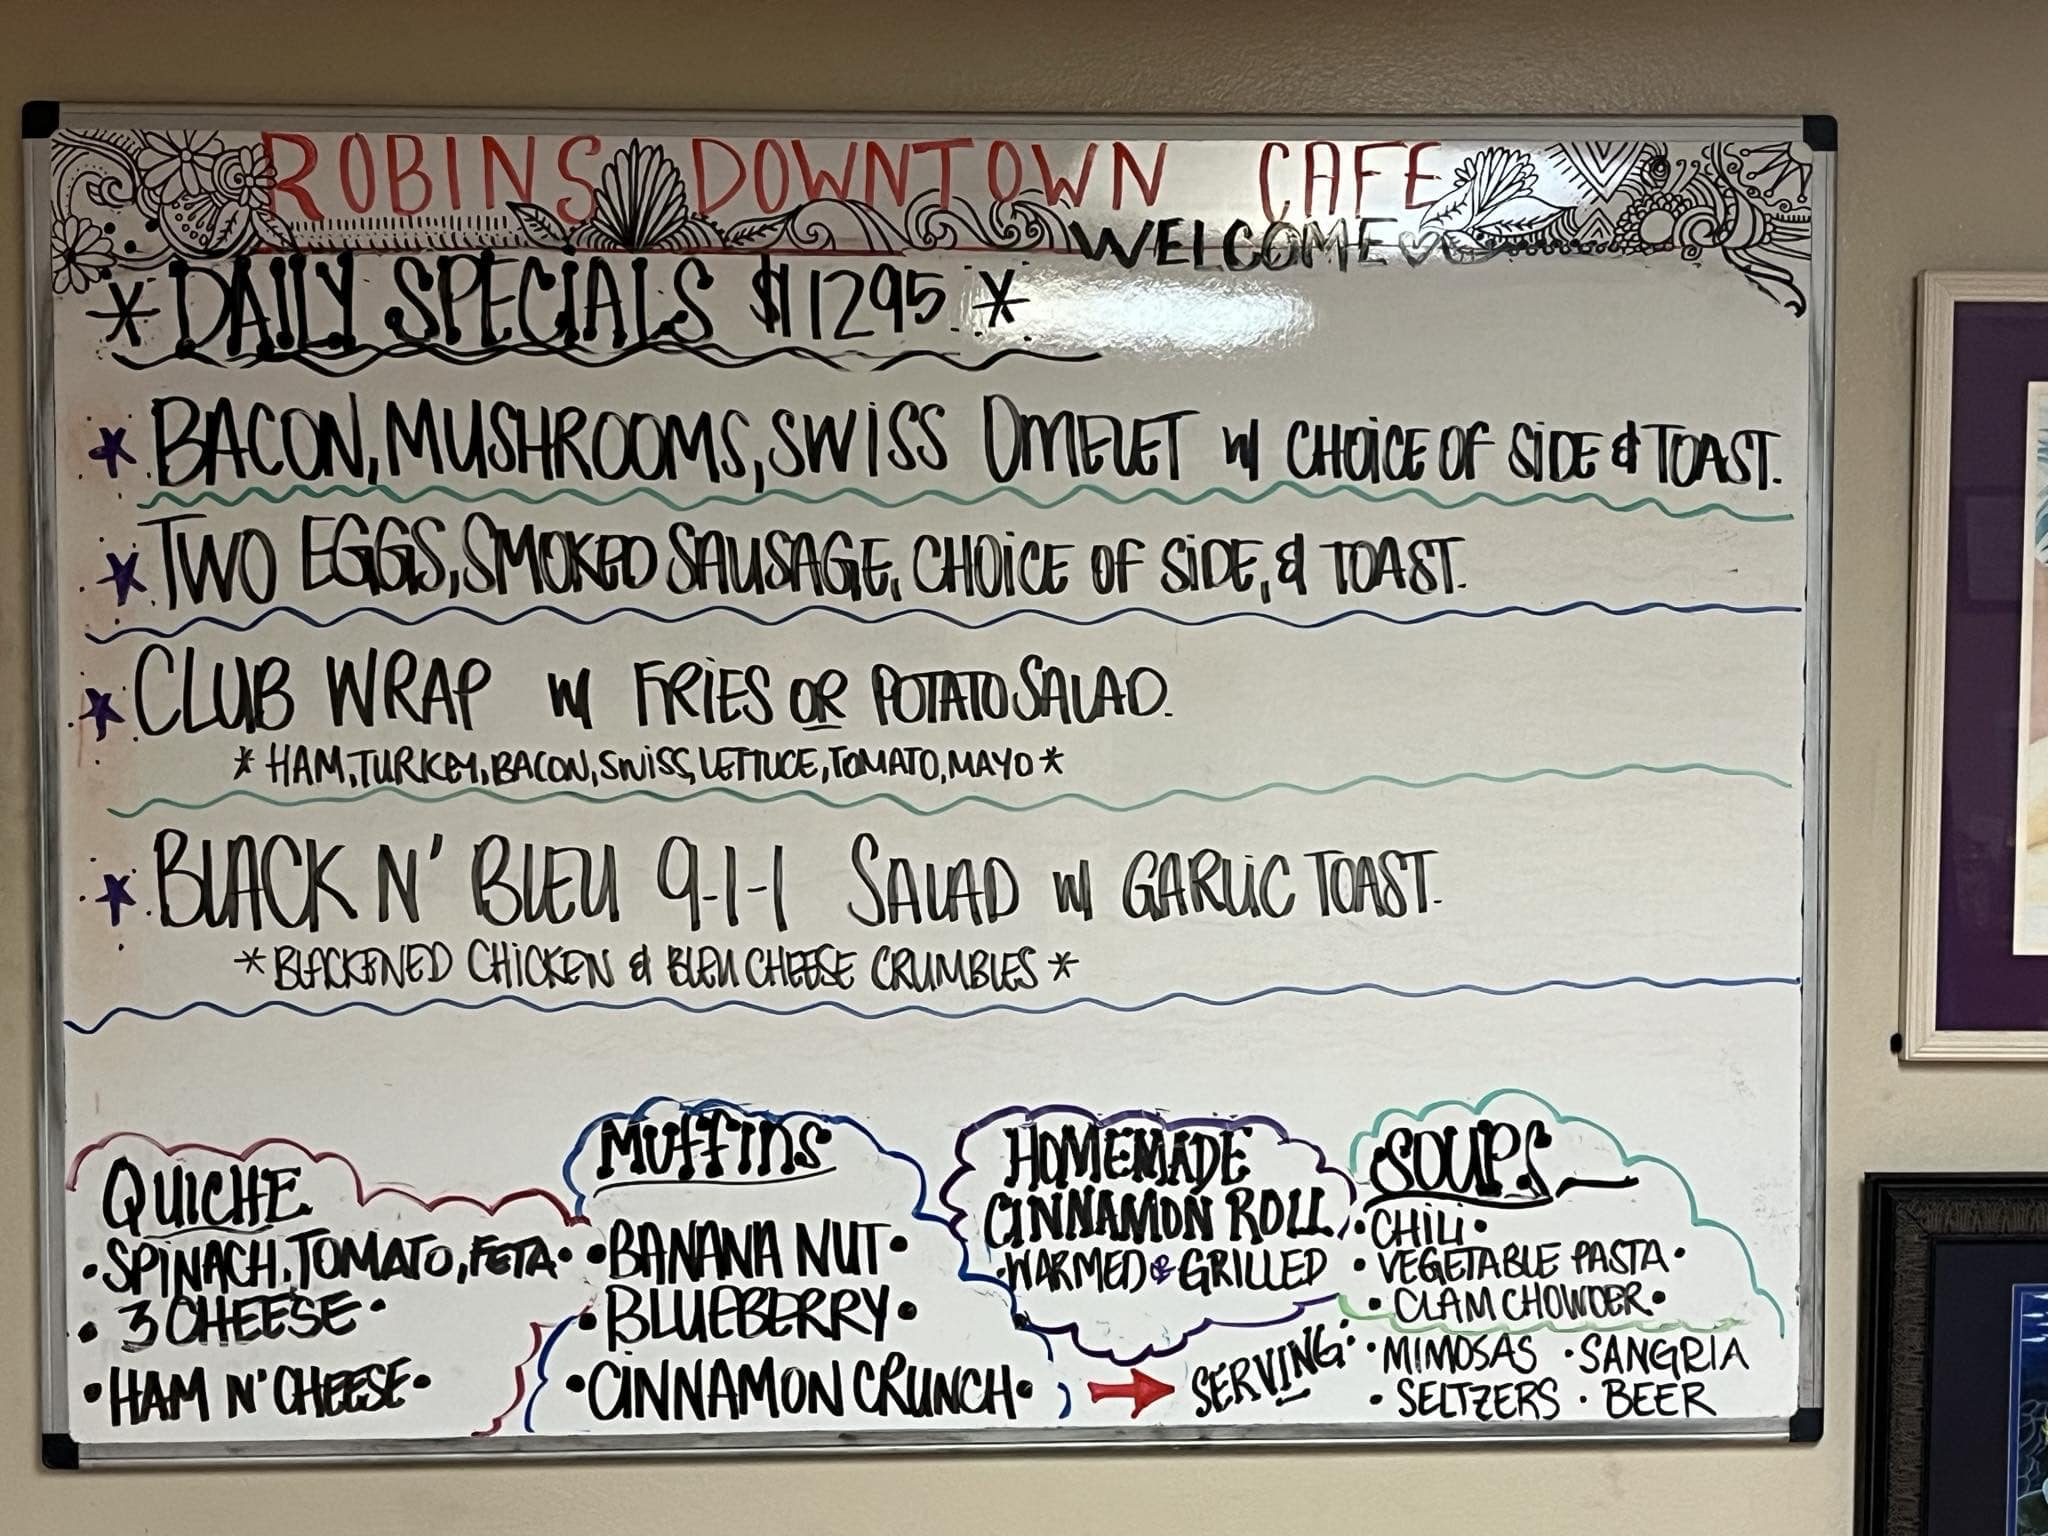 ROBINS DOWNTOWN CAFE
WELCOME
* DAILY SPECIALS $1295 *
BACON, MUSHROOMS, SWISS OMELET W/ CHOICE OF SIDE & TOAST.
TWO EGGS, SMOKED SAUSAGE, CHOICE OF SIDE, & TOAST.
CLUB WRAP W/ FRIES OR POTATO SALAD.
* HAM, TURKEY, BACON, SWISS, LETTUCE, TOMATO, MAYO *
BLACK N' BLEU 9-1-1 SALAD W/ GARLIC TOAST.
* BLACKENED CHICKEN & BLEU CHEESE CRUMBLES *
QUICHE
• SPINACH, TOMATO, FETA •
• 3 CHEESE •
• HAM N' CHEESE •
MUFFINS
• BANANA NUT •
• BLUEBERRY •
• CINNAMON CRUNCH •
HOMEMADE
CINNAMON ROLL
• WARMED & GRILLED
SOUPS
• CHILI •
• VEGETABLE PASTA •
• CLAM CHOWDER •
SERVING:
• MIMOSAS • SANGRIA
• SELTZERS • BEER